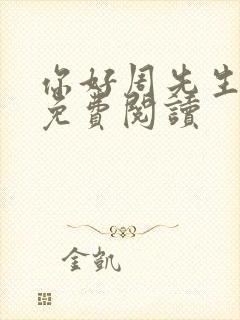 你好周先生
免費閱讀
金凯